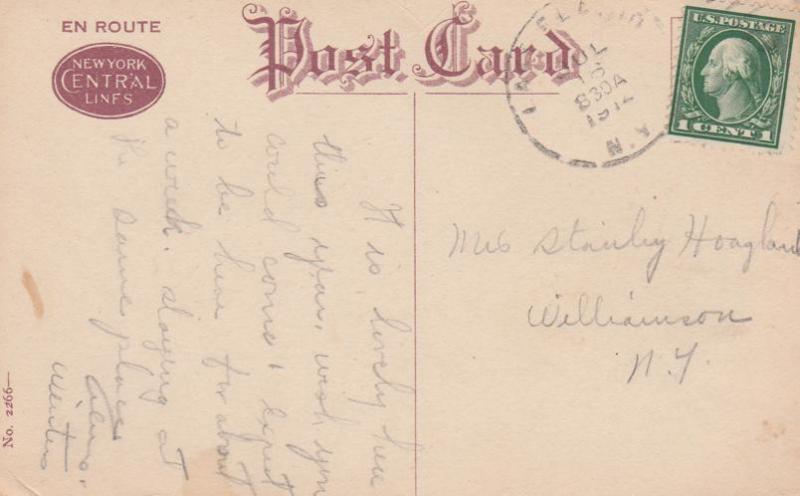 EN ROUTE
NEW YORK
CENTRAL
LINES
Post Card
U.S. POSTAGE
1 CENT 1
JUL
830A
N.Y.
It is lovely here
this year, wish you
could come, expect
to be here for about
a week. staying at
the same place
Mrs Stanley Hoagland
Williamson
N.Y.
No. 2266—